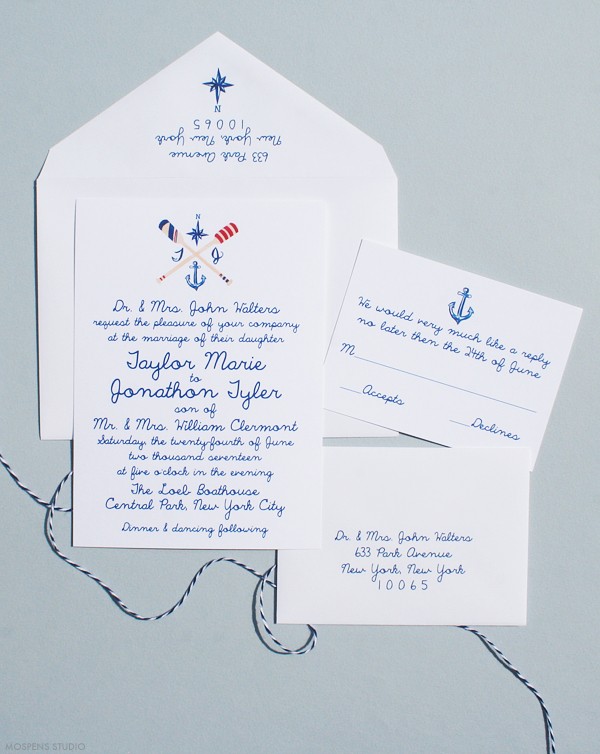 N
633 Park Avenue
New York, New York
10065
N
T J
Dr. & Mrs. John Walters
request the pleasure of your company
at the marriage of their daughter
Taylor Marie
to
Jonathon Tyler
son of
Mr. & Mrs. William Clermont
Saturday, the twenty-fourth of June
two thousand seventeen
at five o'clock in the evening
The Loeb Boathouse
Central Park, New York City
Dinner & dancing following
We would very much like a reply
no later then the 24th of June
M
Accepts
Declines
Dr. & Mrs. John Walters
633 Park Avenue
New York, New York
10065
MOSPENS STUDIO